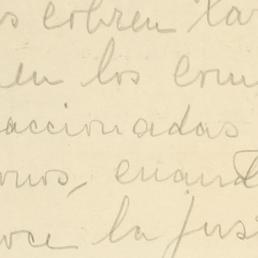 s cobren la
en los com
accionadas
onos, cuand
oce la jus